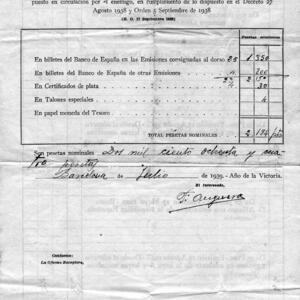 puesto en circulación por el enemigo, en cumplimiento de lo dispuesto en el Decreto 27
Agosto 1938 y Orden 5 Septiembre de 1938
En billetes del Banco de España en las Emisiones consignadas al dorso
En billetes del Banco de España de otras Emisiones
En Certificados de plata 30
En Talones especiales 4
En papel moneda del Tesoro
TOTAL PESETAS NOMINALES 2 184 ptas
Son pesetas nominales Dos mil ciento ochenta y cua
tro pesetas
Gandesa de Julio de 1939.- Año de la Victoria.
El Interesado,
F. Anguera
Conforme:
La Oficina Receptora,